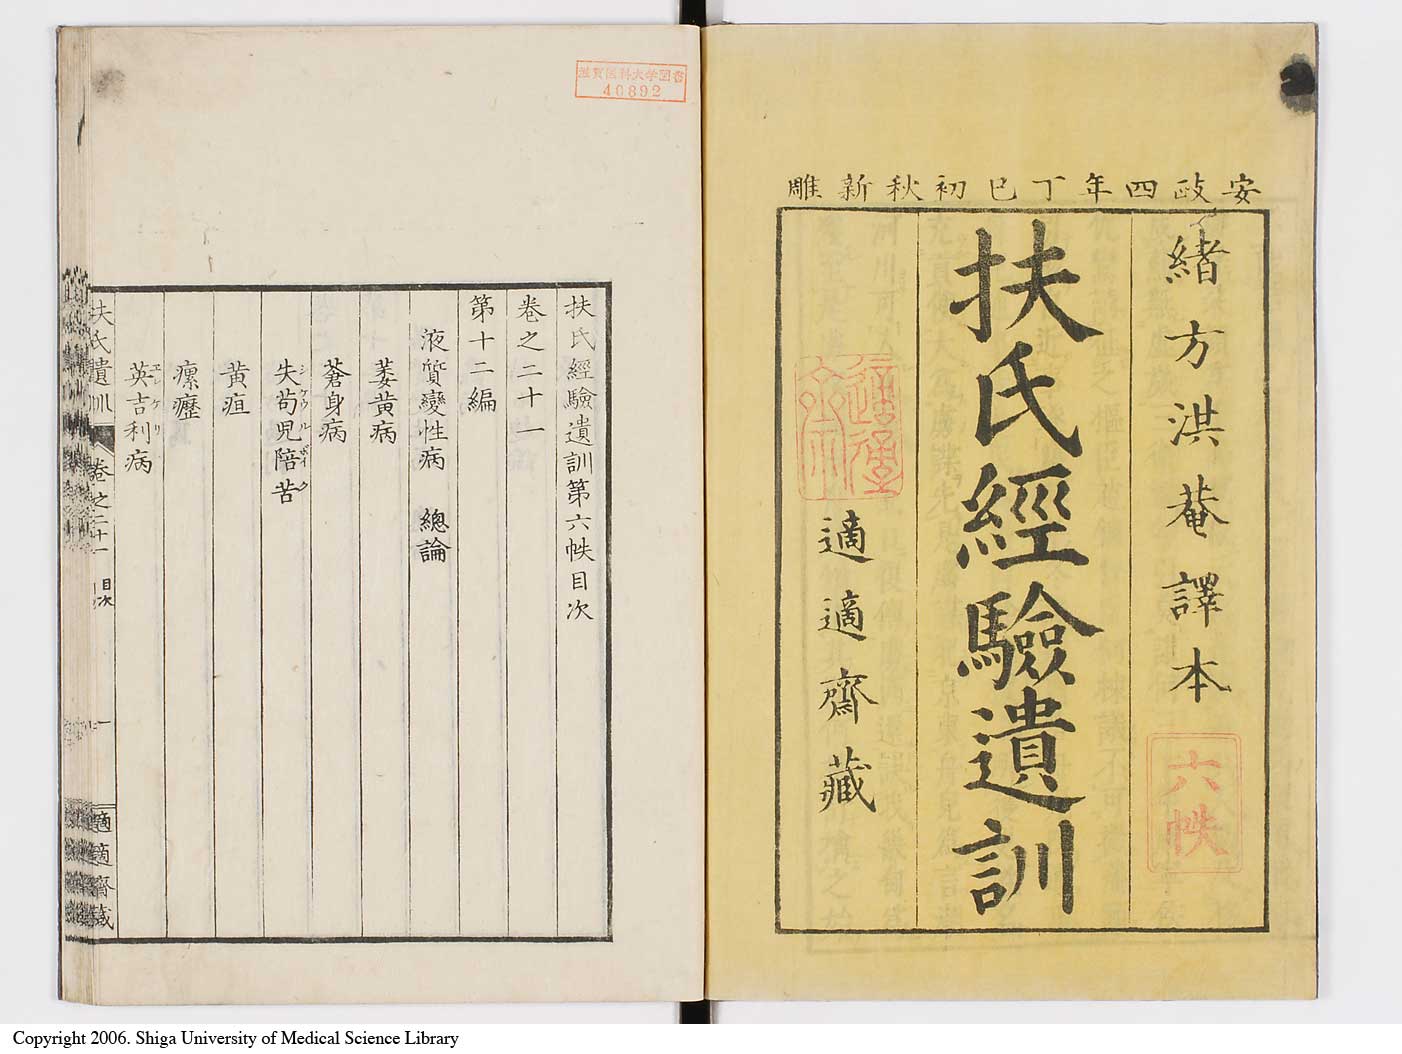 安政四年丁巳初秋新雕
緒方洪菴譯本
六帙
扶氏經驗遺訓
適適齋藏
滋賀医科大学図書
40892
扶氏經驗遺訓第六帙目次
卷之二十一
第十二編
液質變性病　總論
萎黄病
蒼身病
失苟兒陪苦
シケウルボイク
黄疸
瘰癧
英吉利病
エンゲリ
扶氏遺訓 卷之二十一 目次 一 適適齋藏
Copyright 2006. Shiga University of Medical Science Library